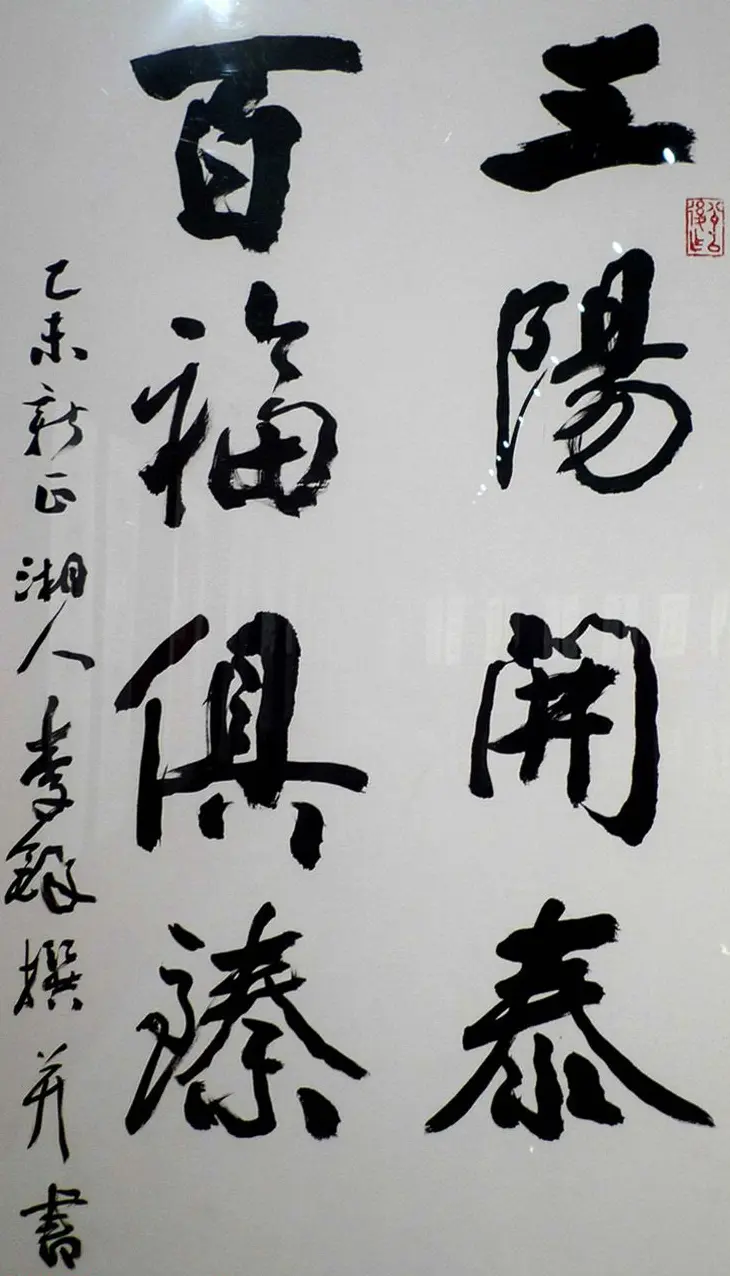 三陽開泰
百福俱臻
乙未新正湘人李鐸撰并書